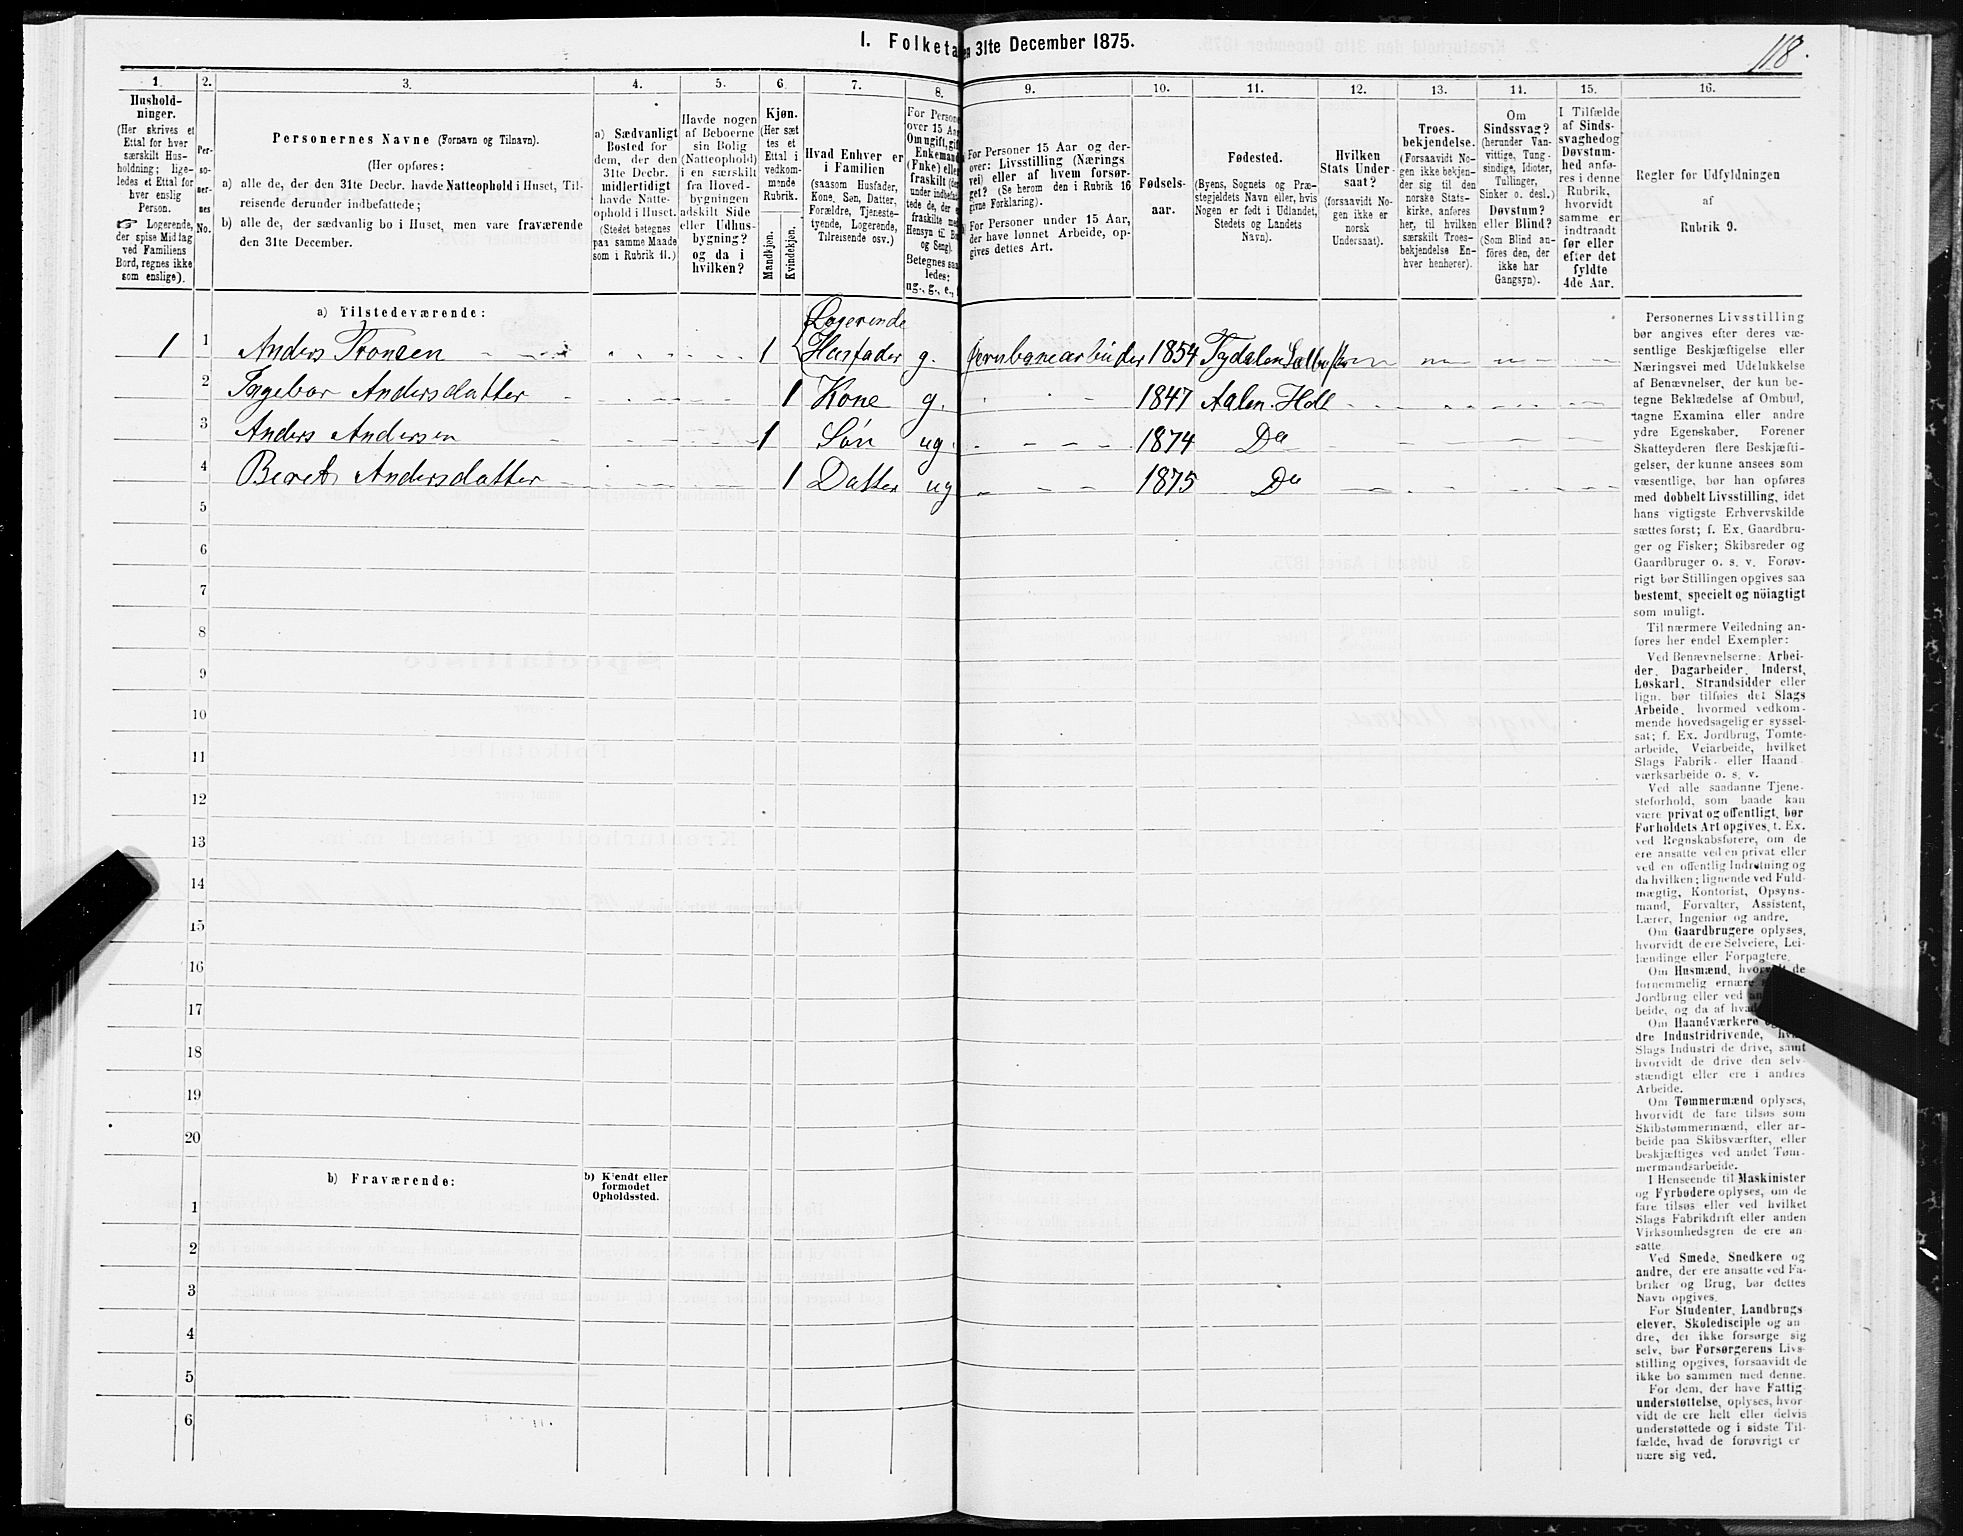 I. Folketa
en 31te December 1875.
118.
1. 2. 3. 4. 5. 6. 7. 8. 9. 10. 11. 12. 13. 14. 15. 16.
Hushold-
ninger.
(Her skrives et
Ettal for hver
særskilt Hus-
holdning; lige-
ledes et Ettal for
hver enslig
Person.
☞ Logerende,
der spise Middag
ved Familiens
Bord, regnes ikke
som enslige).
Per-
so-
ner-
nes
No.
Personernes Navne (Fornavn og Tilnavn).
(Her opføres:
a) alle de, der den 31te Decbr. havde Natteophold i Huset, Til-
reisende derunder indbefattede;
b) alle de, der sædvanlig bo i Huset, men vare fraværende
den 31te December.
a) Sædvanligt
Bosted for
dem, der den
31te Decbr.
midlertidigt
havde Natte-
ophold i Huset.
(Stedet betegnes
paa samme Maade
som i Rubrik 11.)
Havde nogen
af Beboerne
sin Bolig
(Natteophold)
i en særskilt
fra Hoved-
bygningen
adskilt Side
eller Udhus-
bygning?
og da i
hvilken?
Kjøn.
(Her sæt
tes et
Ettal i
vedkom-
mende
Rubrik.
Mandkjøn.
Kvindekjøn.
Hvad Enhver er
i Familien
(saasom Husfader,
Kone, Søn, Datter,
Forældre, Tjeneste-
tyende, Logerende,
Tilreisende osv.)
For Persone
over 15 Aar
Om ugift, gift
Enkemand
(Enke) eller
fraskilt (de
under indbefat
tede de, der e
fraskilte med
Hensyn til Bo
og Seng).
Betegnes saa
ledes:
ug., g., e.,
For Personer 15 Aar og der-
over: Livsstilling (Nærings
vei) eller af hvem forsør-
get? (Se herom den i Rubrik 16
givne Forklaring).
For Personer under 15 Aar,
der have lønnet Arbeide, op-
gives dettes Art.
Fødsels-
aar.
Fødested.
(Byens, Sognets og Præ-
stegjeldets Navn eller, hvis
Nogen er født i Udlandet,
Stedets og Landets
Navn).
Hvilken
Stats Under-
saat?
(forsaavidt No-
gen ikke er
norsk
Undersaat).
Troes-
bekjendelse.
(Forsaavidt No-
gen ikke bekjen-
der sig til den
norske Stats-
kirke, anføres
her, til hvilken
særskilt Troes-
bekjendelse En-
hver henhører).
Om
Sindssvag?
(herunder Van-
vittige, Tung-
sindige, Idioter,
Tullinger,
Sinker o. desl.)
Døvstum?
eller Blind?
(Som Blind an-
føres den, der
ikke har
Gangsyn).
I Tilfælde
af Sinds-
svaghed og
Døvstum-
hed anfø-
res i denne
Rubrik,
hvorvidt
samme er
indtraadt
før eller
efter det
fyldte
4de Aar.
Regler for Udfyldningen
af
Rubrik 9.
a) Tilstedeværende:
Logerende
1 1 Anders Tronsen 1 Husfader g. Jernbanearbeider 1854 Tydalen Sælbu
2 Ingebor Andersdatter 1 Kone g. 1847 Aalen. Holt
3 Anders Andersen 1 Søn ug. 1874 Do
4 Beret Andersdatter 1 Datter ug 1875 Do
5
6
7
8
9
10
11
12
13
14
15
16
17
18
19
20
b) Fraværende:
b) Kjendt eller
formodet
Opholdssted.
1
2
3
4
5
6
Personernes Livsstilling
bør angives efter deres væ-
sentlige Beskjæftigelse eller
Næringsvei med Udelukkelse
af Benævnelser, der kun be-
tegne Beklædelse af Ombud,
tagne Examina eller andre
ydre Egenskaber. Forener
Skatteyderen flere Beskjæfti-
gelser, der kunne ansees som
væsentlige, bør han opføres
med dobbelt Livsstilling, idet
hans vigtigste Erhvervskilde
sættes først; f. Ex. Gaardbru-
ger og Fisker; Skibsreder og
Gaardbruger o. s. v. Forøv-
rigt bør Stillingen opgives saa
bestemt, specielt og nöiagtigt
som muligt.
Til nærmere Veiledning an-
føres her endel Exempler:
Ved Benævnelserne: Arbei-
der, Dagarbeider, Inderst,
Løskarl, Strandsidder eller
lign. bør tilføies det Slags
Arbeide, hvormed vedkom-
mende hovedsagelig er syssel-
sat; f. Ex. Jordbrug, Tomte-
arbeide, Veiarbeide, hvilket
Slags Fabrik- eller Haand-
værksarbeide o. s. v.
Ved alle saadanne Tjene-
steforhold, som baade kan
være privat og offentligt, bør
Forholdets Art opgives, f. Ex.
ved Regnskabsførere, om de
ere ansatte ved en privat eller
ved en offentlig Indretning og
da hvilken; lignende ved Fuld-
mægtig, Kontorist, Opsyns-
mand, Forvalter, Assistent,
Lærer, Ingeniør og andre.
Om Gaardbrugere oplyses,
hvorvidt de ere Selveiere, Lei-
lændinge eller Forpagtere.
Om Husmænd, hvorvidt de
fornemmelig ernære
Jordbrug eller ved an
beide, og da af hvad
Om Haandværkere
dre Industridrivende, hvad
Slags Industri de drive, samt
hvorvidt de drive den selv-
stændigt eller ere i andres
Arbeide.
Om Tømmermænd oplyses,
hvorvidt de fare tilsøs som
Skibstømmermænd, eller ar-
beide paa Skibsværfter, eller
beskjæftiges ved andet Tøm-
mermandsarbeide.
I Henseende til Maskinister
og Fyrbødere oplyses, om de
fare tilsøs eller ved hvilket
Slags Fabrikdrift eller anden
Virksomhedsgren de ere an-
satte.
Ved Smede, Snedkere og
andre, der ere ansatte ved Fa-
briker og Brug, bør dettes
Navn opgives.
For Studenter, Landbrugs
elever, Skoledisciple og an
dre, der ikke forsørge sig
selv, bør Forsørgerens Livs-
stilling opgives, forsaavidt de
ikke bo sammen med denne.
For dem, der have Fattig
understøttelse, oplyses, hvor
vidt de ere helt eller delvis
understøttede og i sidste Til-
fælde, hvad de forøvrigt er
nære sig ved.